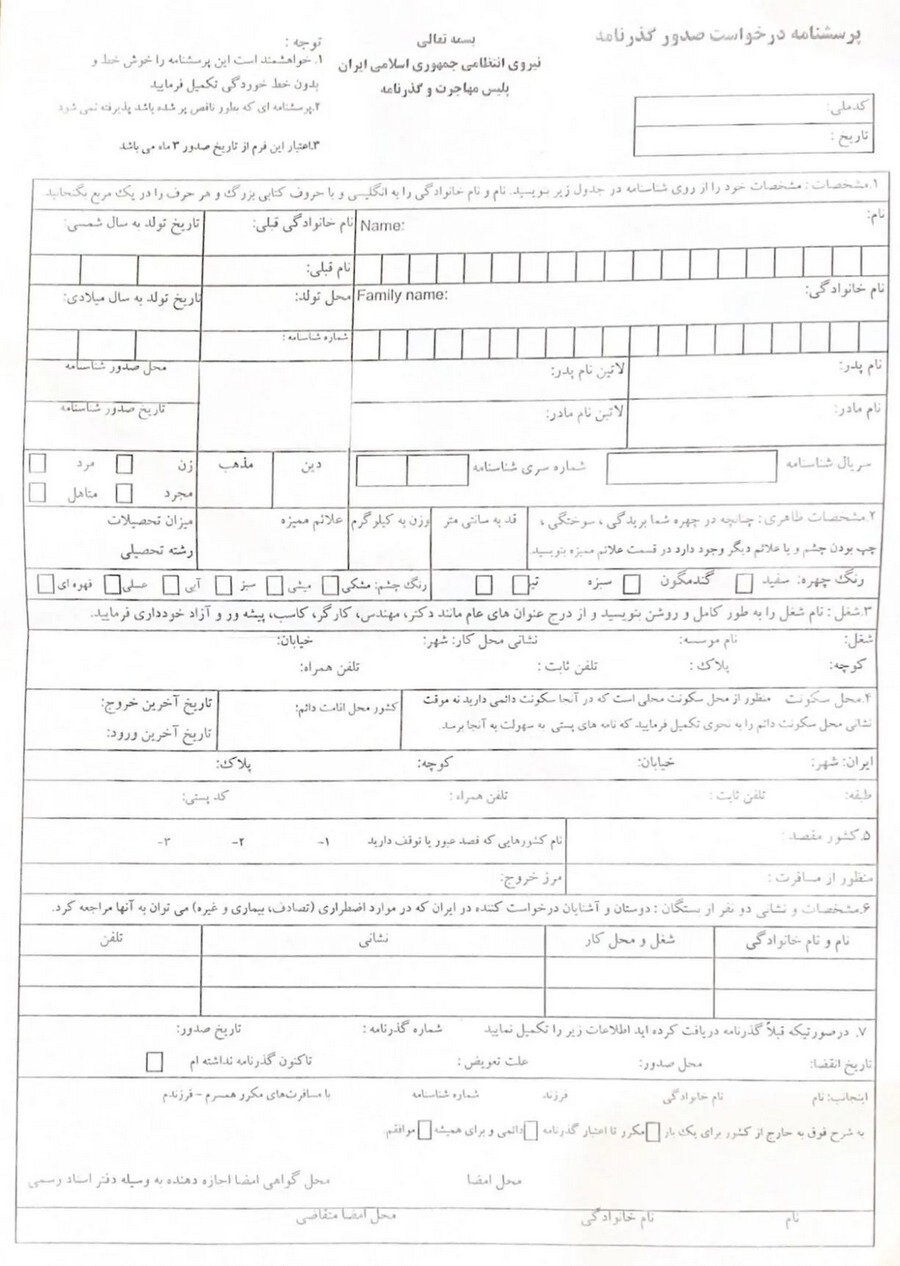 پرسشنامه درخواست صدور گذرنامه
بسمه تعالی
نیروی انتظامی جمهوری اسلامی ایران
پلیس مهاجرت و گذرنامه
توجه :
۱. خواهشمند است این پرسشنامه را خوش خط و
بدون خط خوردگی تکمیل فرمایید
۲.پرسشنامه ای که بطور ناقص پر شده باشد پذیرفته نمی شود
۳.اعتبار این فرم از تاریخ صدور ۳ ماه می باشد
کدملی:
تاریخ :
۱.مشخصات : مشخصات خود را از روی شناسنامه در جدول زیر بنویسید. نام و نام خانوادگی را به انگلیسی و با حروف کتابی بزرگ و هر حرف را در یک مربع بگنجانید.
نام: Name: نام خانوادگی قبلی: تاریخ تولد به سال شمسی:
نام قبلی:
نام خانوادگی: Family name: محل تولد: تاریخ تولد به سال میلادی:
شماره شناسنامه :
نام پدر: لاتین نام پدر: محل صدور شناسنامه
نام مادر: لاتین نام مادر: تاریخ صدور شناسنامه
سریال شناسنامه شماره سری شناسنامه دین مذهب زن مرد
مجرد متاهل
۲.مشخصات ظاهری : چنانچه در چهره شما بریدگی ، سوختگی ، قد به سانتی متر وزن به کیلو گرم علائم ممیزه میزان تحصیلات
چپ بودن چشم و یا علائم دیگر وجود دارد در قسمت علائم ممیزه بنویسید رشته تحصیلی
رنگ چهره: سفید گندمگون سبزه تیره رنگ چشم: مشکی میشی سبز آبی عسلی قهوه ای
۳.شغل : نام شغل را به طور کامل و روشن بنویسید و از درج عنوان های عام مانند دکتر، مهندس، کارگر، کاسب، پیشه ور و آزاد خودداری فرمایید.
شغل: نام موسسه: نشانی محل کار: شهر: خیابان:
کوچه: پلاک : تلفن ثابت : تلفن همراه:
۴.محل سکونت منظور از محل سکونت محلی است که در آنجا سکونت دائمی دارید نه موقت کشور محل اقامت دائم: تاریخ آخرین خروج:
نشانی محل سکونت دائم را به نحوی تکمیل فرمایید که نامه های پستی به سهولت به آنجا برسد. تاریخ آخرین ورود:
ایران: شهر: خیابان: کوچه: پلاک:
طبقه: تلفن ثابت : تلفن همراه : کد پستی:
۵.کشور مقصد : نام کشورهایی که قصد عبور یا توقف دارید ۱- ۲- ۳-
منظور از مسافرت : مرز خروج:
۶.مشخصات و نشانی دو نفر از بستگان : دوستان و آشنایان درخواست کننده در ایران که در موارد اضطراری (تصادف، بیماری و غیره) می توان به آنها مراجعه کرد.
نام و نام خانوادگی شغل و محل کار نشانی تلفن
۷. درصورتیکه قبلاً گذرنامه دریافت کرده اید اطلاعات زیر را تکمیل نمایید شماره گذرنامه : تاریخ صدور:
تاریخ انقضا: محل صدور: علت تعویض : تاکنون گذرنامه نداشته ام
اینجانب: نام نام خانوادگی فرزند شماره شناسنامه با مسافرت‌های مکرر همسرم - فرزندم
به شرح فوق به خارج از کشور برای یک بار مکرر تا اعتبار گذرنامه دائمی و برای همیشه موافقم.
محل امضا محل گواهی امضا اجازه دهنده به وسیله دفتر اسناد رسمی
نام نام خانوادگی محل امضا متقاضی